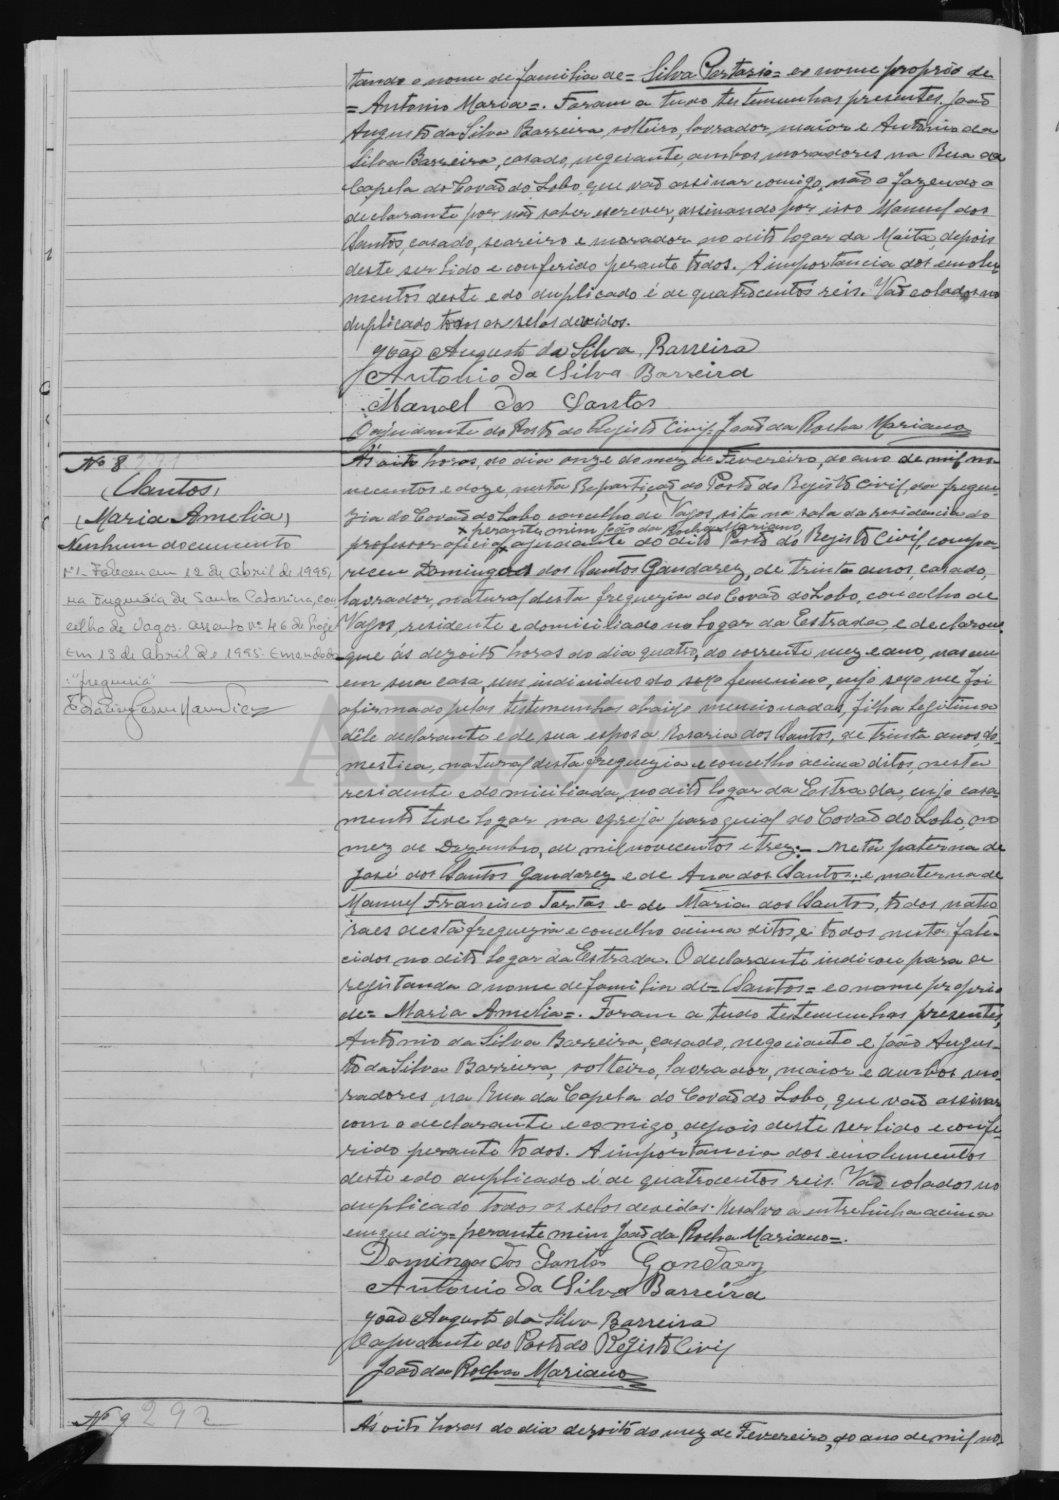 tando o nome de familia de= Silva Portasio= eo nome proprio de
= Antonio Maria=. Foram a tudo testemunhas presentes, João
Augusto da Silva Barreira, solteiro, lavrador, maior e Antonio da
Silva Barreira, casado, negociante, ambos moradores na Rua da
Capela do Covão do Lobo, que vão assinar comigo, não o fazendo o
declarante por não saber escrever, assinando por isso Manuel dos
Santos, casado, seareiro e morador no dito logar da Maita, depois
deste ser lido e conferido perante todos. A importancia dos emolu-
mentos deste e do duplicado é de quatrocentos réis. Vão colados no
duplicado todos os selos devidos.
João Augusto da Silva Barreira
Antonio da Silva Barreira
Manoel dos Santos
O ajudante do Posto do Registo Civil, João da Rocha Mariano
Nº 8 291
(Santos,
(Maria Amelia)
Nenhum documento
Nº1- Faleceu em 12 de Abril de 1995,
na freguesia de Santa Catarina, con
celho de Vagos. Assento nº 46 de hoje
Em 13 de Abril de 1995. Emendado
: "freguesia"
Ás oito horas, do dia onze do mez de Fevereiro, do ano de mil no-
vecentos e doze, nesta Repartição do Posto do Registo Civil, da fregue-
zia do Covão do Lobo concelho de Vagos, sita na sala da residencia do
perante mim João da Rocha Mariano
professor oficial, ajudante do dito Posto do Registo Civil, compa-
receu Domingos dos Santos Gandarez, de trinta anos, casado,
lavrador, natural desta freguezia do Covão do Lobo, concelho de
Vagos, residente e domiciliado no logar da Estrada, e declarou
que ás dezoito horas do dia quatro, do corrente mez e ano, nasceu
em sua casa, um individuo do sexo femenino, cujo sexo me foi
afirmado pelas testemunhas abaixo mencionadas, filha legitima
dêle declarante e de sua esposa Rosaria dos Santos, de trinta anos, do-
mestica, natural desta freguezia e concelho acima ditos, nesta
residente e domiciliada, no dito logar da Estrada, cujo casa-
mento teve logar na egreja paroquial do Covão do Lobo, no
mez de Dezembro, de mil novecentos e trez:- Neta paterna de
José dos Santos Gandarez e de Ana dos Santos; e materna de
Manuel Francisco Tortas e de Maria dos Santos, todos natu
raes desta freguezia e concelho acima ditos, e todos nesta fale-
cidos no dito logar da Estrada. O declarante indicou para a
registanda o nome de familia de= Santos= e o nome proprio
de= Maria Amelia=. Foram a tudo testemunhas presentes,
Antonio da Silva Barreira, casado, negociante e João Augus-
to da Silva Barreira, solteiro, lavrador, maior e ambos mo-
radores na Rua da Capela do Covão do Lobo, que vão assinar
com o declarante e comigo, depois deste ser lido e confe-
rido perante todos. A importancia dos emolumentos
deste e do duplicado é de quatrocentos reis. Vão colados no
duplicado todos os selos devidos. Resalvo a entrelinha acima
em que diz= perante mim João da Rocha Mariano=.
Domingos dos Santos Gandarez
Antonio da Silva Barreira
João Augusto da Silva Barreira
O ajudante do Posto do Registo Civil
João da Rocha Mariano
Nº 9 292
Ás oito horas do dia dezoito do mez de Fevereiro, do ano de mil no-